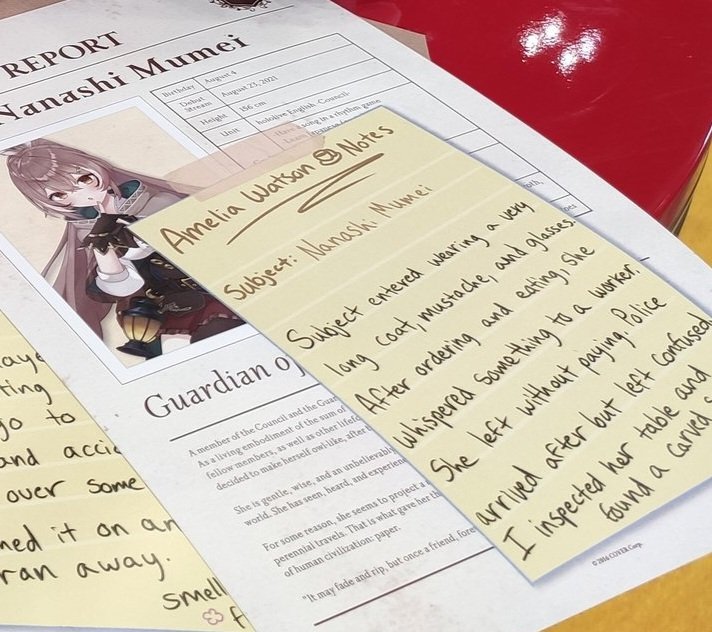 REPORT
Nanashi Mumei
Birthday August 4
Debut Stream August 23, 2021
Height 156 cm
Unit hololive English -Council-
song in a rhythm game
Amelia Watson Notes
Subject: Nanashi Mumei
Subject entered wearing a very
long coat, mustache, and glasses.
After ordering and eating, she
whispered something to a worker.
She left without paying. Police
arrived after but left confused
I inspected her table and
found a carved
Guardian o
A member of the Council and the
As a living embodiment of the sum of
fellow members, as well as other
decided to make herself owl-like,
She is gentle, wise, and an
world. She has seen, heard, and
For some reason, she seems to project a
perennial travels. That is what gave her
of human civilization: paper.
"It may fade and rip, but once a friend,
© 2016 COVER Corp.
ting
go to
and
over some
it on an
ran away.
smell